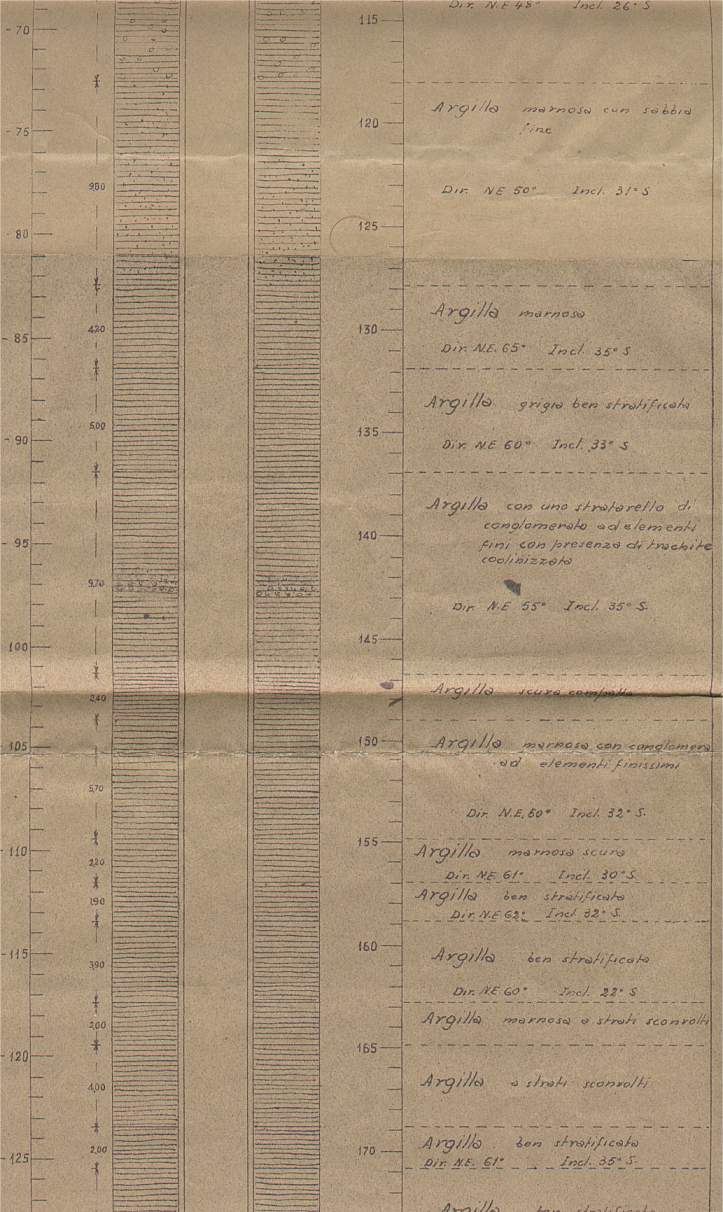 Dir. N.E 48° Incl. 26° S
-70
115
Argilla marnosa con sabbia
fine
120
-75
980
Dir. NE 50° Incl. 31° S
125
80
Argilla marnosa
130
420
- 85
Dir. N.E. 65° Incl. 35° S
Argilla grigia ben stratificata
500
135
- 90
Dir. N.E 60° Incl. 33° S
Argilla con uno straterello di
conglomerato ad elementi
140
- 95
fini con presenza di trachite
caolinizzata
9,70
Dir N.E 55° Incl. 35° S.
145
100
Argilla scura compatta
2,40
150
105
Argilla marnosa con conglomera
ad elementi finissimi
5,70
Dir. N.E. 60° Incl. 32° S.
155
-110
Argilla marnosa scura
2,20
Dir. NE 61° Incl. 30° S
Argilla ben stratificata
190
Dir. N.E 62° Incl 32° S.
160
-115
Argilla ben stratificata
3,90
Dir. N.E 60° Incl. 22° S
Argilla marnosa a strati sconvolti
2,00
165
-120
Argilla a strati sconvolti
4,00
Argilla ben stratificata
2,00
170
-125
Dir. N.E. 61° Incl. 35° S.
Argilla ben stratificata